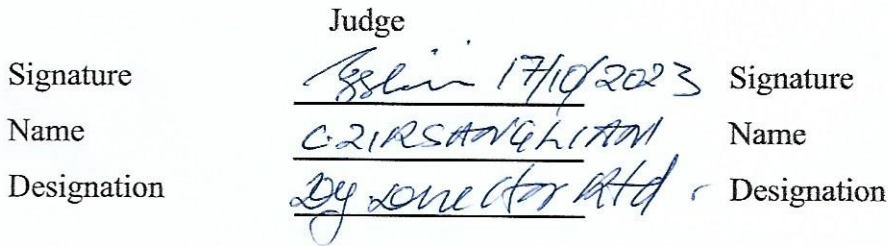 Judge
Signature 17/10/2023 Signature
Name C. ZIRSANGLIAN Name
Designation Dy Director Rtd. Designation